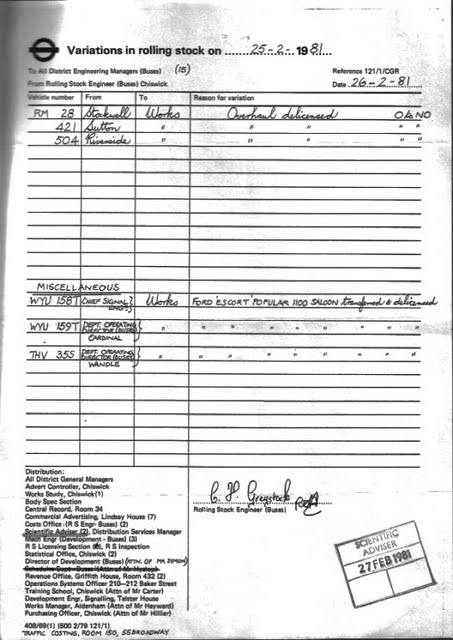 Variations in rolling stock on 25-2-1981
To All District Engineering Managers (Buses) (15) Reference 121/1/CGR
From Rolling Stock Engineer (Buses) Chiswick Date 26-2-81
Vehicle number From To Reason for variation
RM 28 Stockwell Works Overhaul delicensed O&NO
421 Sutton " " " " "
504 Riverside " " " " "
MISCELLANEOUS
WYU 158T CHIEF SIGNAL ENGR. } Works FORD 'ESCORT' POPULAR 1100 SALOON transferred & delicensed
WYU 159T DEPT. OPERATING DIRECTOR (BUSES) CARDINAL } " " " " " " " "
THV 35S DEPT. OPERATING DIRECTOR (BUSES) WANDLE } " " " " " " " "
Distribution:
All District General Managers
Advert Controller, Chiswick
Works Study, Chiswick (1)
Body Spec Section
Central Record, Room 34
Commercial Advertising, Lindsay House (7)
Costs Office (R S Engr- Buses) (2)
Scientific Adviser (2), Distribution Services Manager
Mech Engr (Development - Buses) (3)
R S Licensing Section, R S Inspection
Statistical Office, Chiswick (2)
Director of Development (Buses) (ATTN. OF MR.
Revenue Office, Griffith House, Room 432 (2)
Operations Systems Officer 210-212 Baker Street
Training School, Chiswick (Attn of Mr Carter)
Development Engr, Signalling, Telstar House
Works Manager, Aldenham (Attn of Mr Hayward)
Purchasing Officer, Chiswick (Attn of Mr Hillier)
408/69(1) (500 2/79 121/1)
TRAFFIC COSTING, ROOM 150, 55 BROADWAY
C. H. Greystock
Rolling Stock Engineer (Buses)
SCIENTIFIC
ADVISER
27 FEB 1981